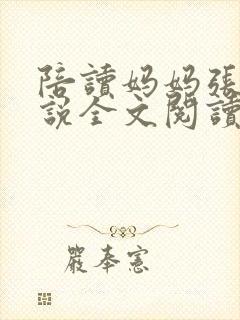 陪讀妈妈張
說全文閱讀
嚴奉憲